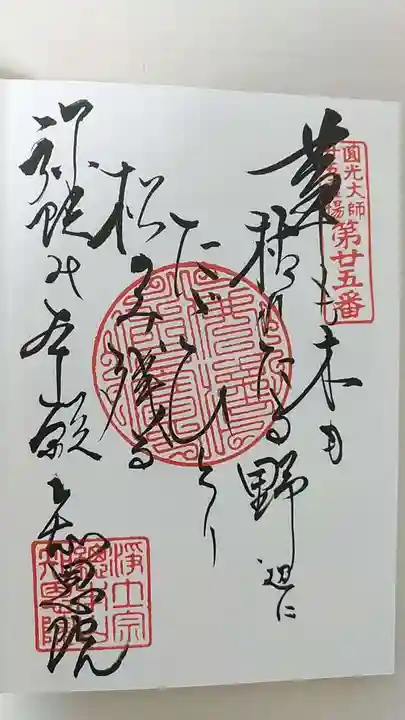 圓光大師
第廿五番
草も木も
枯れたる野辺に
ただひとり
松のみ残る
弥陀の本願
知恩院
浄土宗
總本山
知恩院